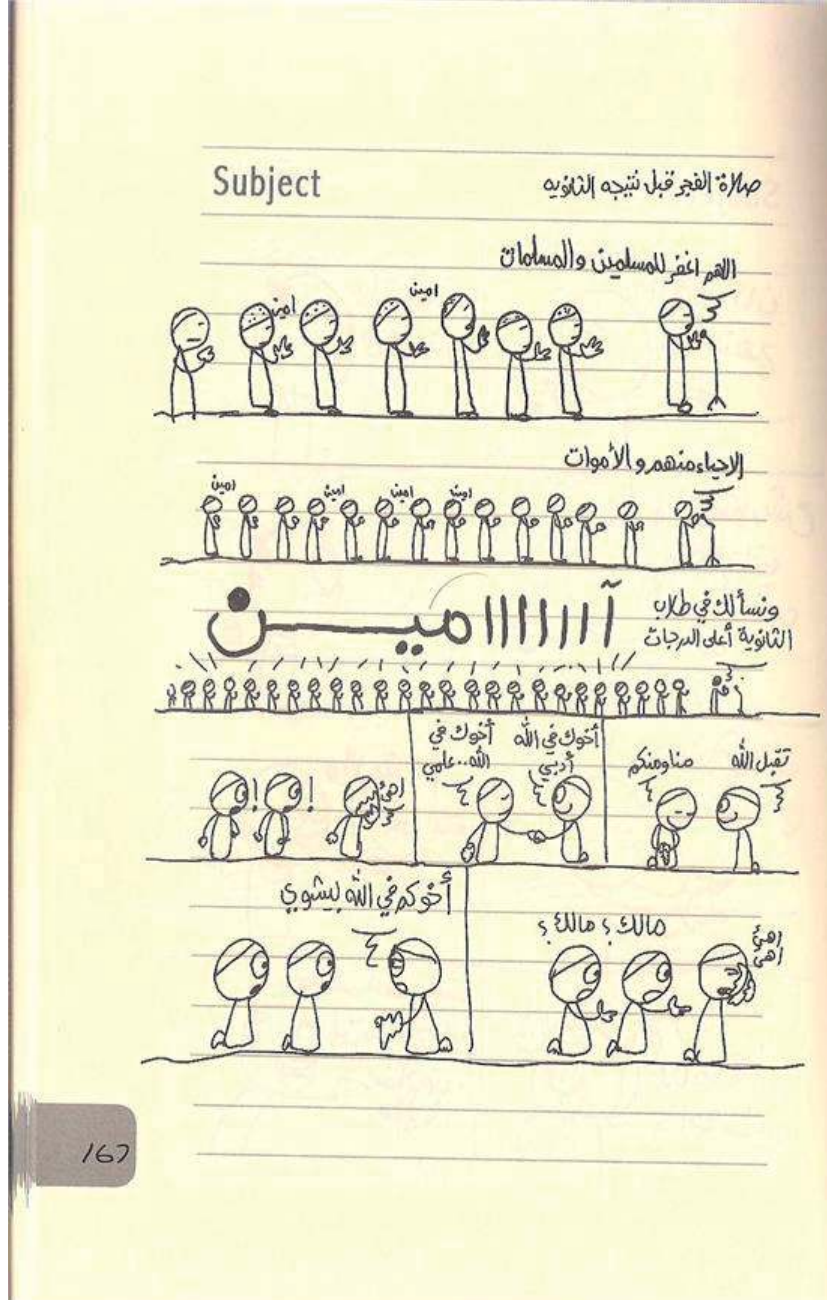 Subject
صلاة الفجر قبل نتيجه الثانويه
اللهم اغفر للمسلمين والمسلمات
امين
امين
الاحياء منهم والأموات
امين
امين
امين
امين
ونسألك في طلاب
الثانوية أعلى الدرجات
آاااااااميــــن
تقبل الله
منا ومنكم
أخوك في الله
أدبي
أخوك في
الله..علمي
اهئ
!
!
اهئ
اهئ
مالك؟ مالك؟
أخوكم في الله بيشوي
167